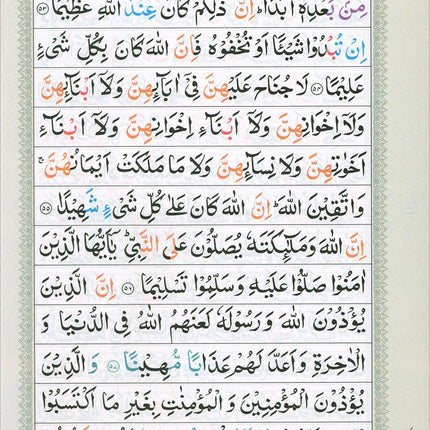 مِنْۢ بَعْدِهٖۤ اَبَدًا ؕ اِنَّ ذٰلِكُمْ كَانَ عِنْدَ اللّٰهِ عَظِیْمًا ۵۳
اِنْ تُبْدُوْا شَیْـًٔا اَوْ تُخْفُوْهُ فَاِنَّ اللّٰهَ كَانَ بِكُلِّ شَیْءٍ
عَلِیْمًا ۵۴ لَا جُنَاحَ عَلَیْهِنَّ فِیْۤ اٰبَآىِٕهِنَّ وَلَاۤ اَبْنَآىِٕهِنَّ
وَلَاۤ اِخْوَانِهِنَّ وَلَاۤ اَبْنَآءِ اِخْوَانِهِنَّ وَلَاۤ اَبْنَآءِ
اَخَوٰتِهِنَّ وَلَا نِسَآىِٕهِنَّ وَلَا مَا مَلَكَتْ اَیْمَانُهُنَّ ۚ
وَاتَّقِیْنَ اللّٰهَ ؕ اِنَّ اللّٰهَ كَانَ عَلٰی كُلِّ شَیْءٍ شَهِیْدًا ۵۵
اِنَّ اللّٰهَ وَمَلٰٓىِٕكَتَهٗ یُصَلُّوْنَ عَلَی النَّبِیِّ ؕ یٰۤاَیُّهَا الَّذِیْنَ
اٰمَنُوْا صَلُّوْا عَلَیْهِ وَسَلِّمُوْا تَسْلِیْمًا ۵۶ اِنَّ الَّذِیْنَ
یُؤْذُوْنَ اللّٰهَ وَرَسُوْلَهٗ لَعَنَهُمُ اللّٰهُ فِی الدُّنْیَا وَ
الْاٰخِرَةِ وَاَعَدَّ لَهُمْ عَذَابًا مُّهِیْنًا ۵۷ وَالَّذِیْنَ
یُؤْذُوْنَ الْمُؤْمِنِیْنَ وَالْمُؤْمِنٰتِ بِغَیْرِ مَا اكْتَسَبُوْا